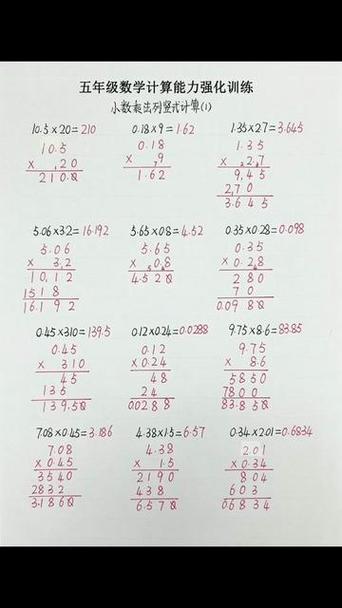 五年级数学计算能力强化训练
小数乘法列竖式计算(1)
10.5×20=210 0.18×9=1.62 1.35×2.7=3.645
10.5 0.18 1.35
× 20 × 9 × 2.7
210.0 1.62 945
270
3.645
5.06×3.2=16.192 5.65×0.8=4.52 0.35×0.28=0.098
5.06 5.65 0.35
× 3.2 × 0.8 ×0.28
1012 4.520 280
1518 70
16.192 0.0980
0.45×310=139.5 0.12×0.24=0.0288 9.75×8.6=83.85
0.45 0.12 9.75
× 310 ×0.24 × 8.6
45 48 5850
135 24 7800
139.50 0.0288 83.850
7.08×0.45=3.186 4.38×1.5=6.57 0.34×2.01=0.6834
7.08 4.38 2.01
×0.45 × 1.5 ×0.34
3540 2190 804
2832 438 603
3.1860 6.570 0.6834